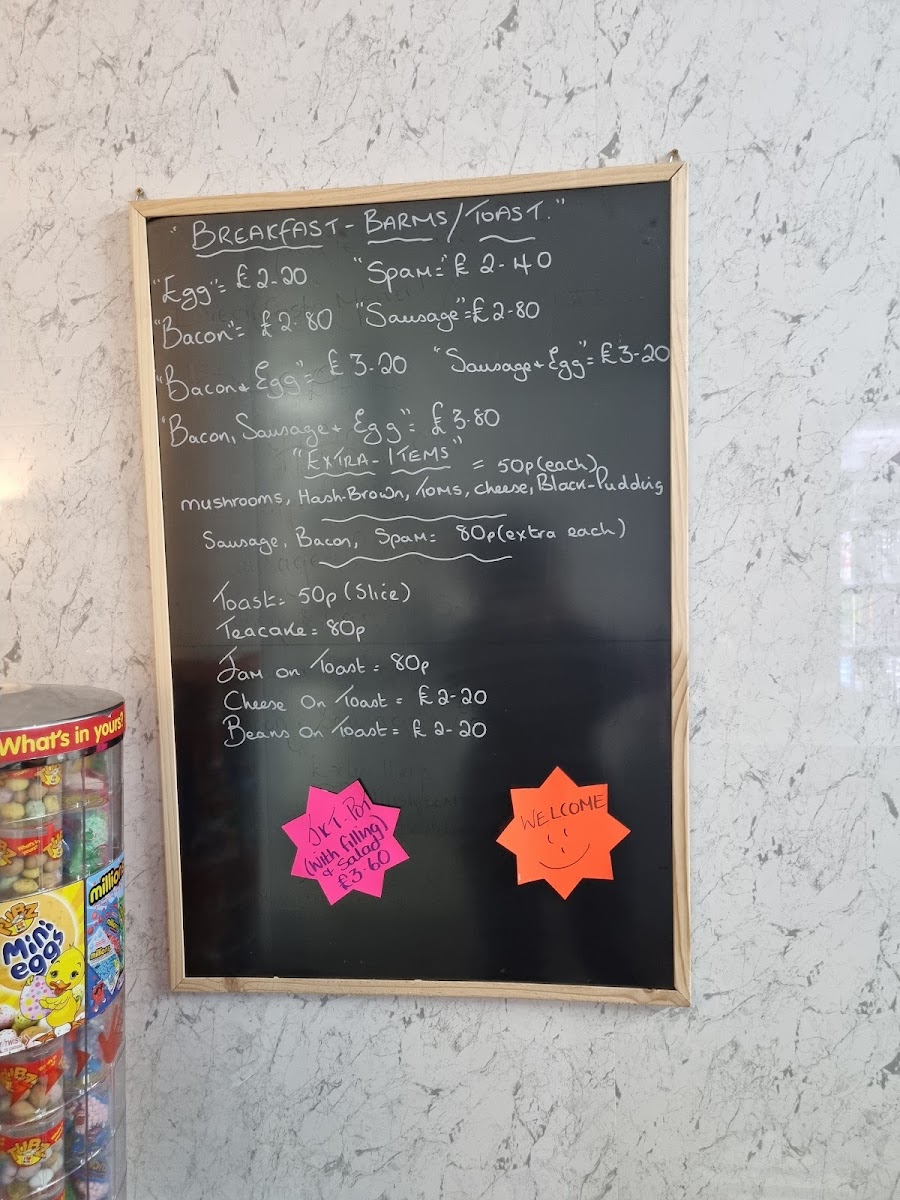 "BREAKFAST - BARMS/TOAST."
"Egg" = £2-20 "Spam=" £2-40
"Bacon" = £2.80 "Sausage" = £2-80
"Bacon + Egg" = £3.20 "Sausage + Egg" = £3-20
"Bacon, Sausage + Egg" = £3.80
"EXTRA-ITEMS" = 50p (each)
mushrooms, Hash-Brown, Toms, cheese, Black-Pudding
Sausage, Bacon, Spam= 80p (extra each)
Toast= 50p (Slice)
Teacake = 80p
Jam on Toast = 80p
Cheese On Toast = £2-20
Beans On Toast = £2-20
JKT-POT
(With filling)
+ Salad
£3.60
WELCOME
What's in yours?
TUBZ
Mini
eggs
millions